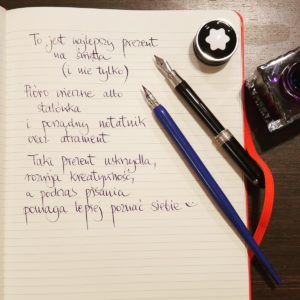 To jest najlepszy prezent
na święta
(i nie tylko)
Pióro wieczne albo
stalówka
i porządny notatnik
oraz atrament
Taki prezent uskrzydla,
rozwija kreatywność,
a podczas pisania
pomaga lepiej poznać siebie